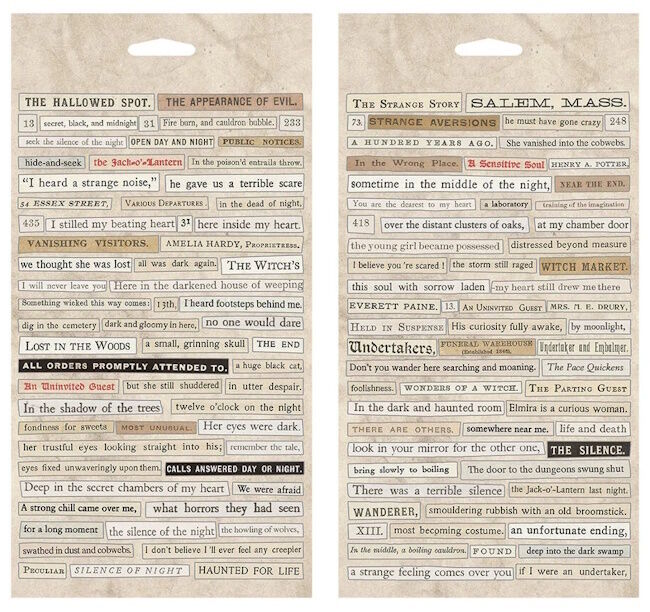 THE HALLOWED SPOT. THE APPEARANCE OF EVIL.
13 secret, black, and midnight 31 Fire burn, and cauldron bubble. 233
seek the silence of the night OPEN DAY AND NIGHT PUBLIC NOTICES.
hide-and-seek the Jack-o'-Lantern In the poison'd entrails throw.
"I heard a strange noise," he gave us a terrible scare
54 ESSEX STREET, VARIOUS DEPARTURES. in the dead of night,
435 I stilled my beating heart 31 here inside my heart.
VANISHING VISITORS. AMELIA HARDY, PROPRIETRESS.
we thought she was lost all was dark again. THE WITCH'S
I will never leave you Here in the darkened house of weeping
Something wicked this way comes: 13th, I heard footsteps behind me.
dig in the cemetery dark and gloomy in here, no one would dare
LOST IN THE WOODS a small, grinning skull THE END
ALL ORDERS PROMPTLY ATTENDED TO. a huge black cat,
An Uninvited Guest but she still shuddered in utter despair.
In the shadow of the trees twelve o'clock on the night
fondness for sweets MOST UNUSUAL. Her eyes were dark.
her trustful eyes looking straight into his; remember the tale,
eyes fixed unwaveringly upon them. CALLS ANSWERED DAY OR NIGHT.
Deep in the secret chambers of my heart We were afraid
A strong chill came over me, what horrors they had seen
for a long moment the silence of the night the howling of wolves,
swathed in dust and cobwebs. I don't believe I'll ever feel any creepier
PECULIAR SILENCE OF NIGHT HAUNTED FOR LIFE
THE STRANGE STORY SALEM, MASS.
73. STRANGE AVERSIONS he must have gone crazy 248
A HUNDRED YEARS AGO. She vanished into the cobwebs.
In the Wrong Place. A Sensitive Soul HENRY A. POTTER,
sometime in the middle of the night, NEAR THE END.
You are the dearest to my heart a laboratory training of the imagination
418 over the distant clusters of oaks, at my chamber door
the young girl became possessed distressed beyond measure
I believe you're scared! the storm still raged WITCH MARKET.
this soul with sorrow laden my heart still drew me there
EVERETT PAINE, 13. AN UNINVITED GUEST MRS. M. E. DRURY,
HELD IN SUSPENSE His curiosity fully awake, by moonlight,
Undertakers, FUNERAL WAREHOUSE Undertaker and Embalmer.
(Established 1840),
Don't you wander here searching and moaning. The Pace Quickens
foolishness. WONDERS OF A WITCH. THE PARTING GUEST
In the dark and haunted room Elmira is a curious woman.
THERE ARE OTHERS. somewhere near me. life and death
look in your mirror for the other one, THE SILENCE.
bring slowly to boiling The door to the dungeons swung shut
There was a terrible silence the Jack-o'-Lantern last night.
WANDERER, smouldering rubbish with an old broomstick.
XIII. most becoming costume. an unfortunate ending,
In the middle, a boiling cauldron. FOUND deep into the dark swamp
a strange feeling comes over you if I were an undertaker,